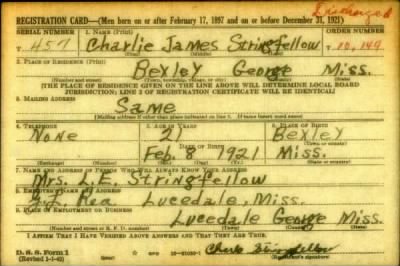 Discharged
REGISTRATION CARD—(Men born on or after February 17, 1897 and on or before December 31, 1921)
SERIAL NUMBER 1. NAME (Print) ORDER NUMBER
T 457 Charlie James Stringfellow T 10,149
2. PLACE OF RESIDENCE (Print)
Bexley George Miss.
(Number and street) (Town, township, village, or city) (County) (State)
[THE PLACE OF RESIDENCE GIVEN ON THE LINE ABOVE WILL DETERMINE LOCAL BOARD
JURISDICTION; LINE 2 OF REGISTRATION CERTIFICATE WILL BE IDENTICAL]
3. MAILING ADDRESS
Same
[Mailing address if other than place indicated on line 2. If same insert word same]
4. TELEPHONE 5. AGE IN YEARS 6. PLACE OF BIRTH
None 21 Bexley
DATE OF BIRTH (Town or county)
Feb. 8 1921 Miss.
(Exchange) (Number) (Mo.) (Day) (Yr.) (State or country)
7. NAME AND ADDRESS OF PERSON WHO WILL ALWAYS KNOW YOUR ADDRESS
Mrs. L.E. Stringfellow
8. EMPLOYER'S NAME AND ADDRESS
Rea Lucedale, Miss.
9. PLACE OF EMPLOYMENT OR BUSINESS
Lucedale George Miss.
(Number and street or R. F. D. number) (Town) (County) (State)
I AFFIRM THAT I HAVE VERIFIED ABOVE ANSWERS AND THAT THEY ARE TRUE.
D. S. S. Form 1
(Revised 1-1-42) (over) Stringfellow
(Registrant's signature)